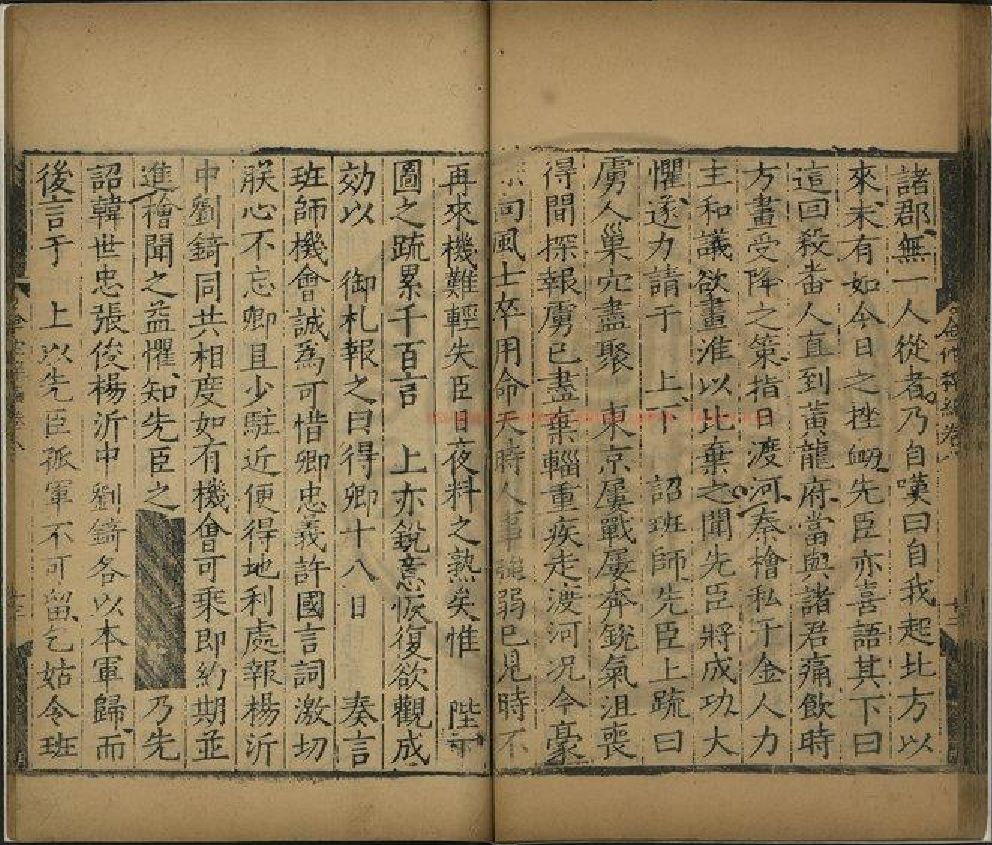 諸郡無一人從者乃自嘆曰自我起北方以
來未有如今日之挫衂先臣亦喜語其下曰
這回殺畨人直到黃龍府當與諸君痛飲時
方畫受降之策指日渡河秦檜私于金人力
主和議欲畫淮以北棄之聞先臣將成功大
懼遂力請于 上下 詔班師先臣上䟽曰
虜人巢穴盡聚 東京屢戰屢奔銳氣沮喪
得間探報虜已盡棄輜重疾走渡河况今豪
向風士卒用命天時人事強弱已見時不
再來機難輕失臣日夜料之熟矣惟 陛下
圖之䟽累千百言 上亦銳意恢復欲觀成
効以 御札報之曰得卿十八日 奏言
班師機會誠為可惜卿忠義許國言詞激切
朕心不忘卿且少駐近便得地利處報楊沂
中劉錡同共相度如有機會可乘即約期並
進檜聞之益懼知先臣之 乃先
詔韓世忠張俊楊沂中劉錡各以本軍歸而
後言于 上以先臣孤軍不可留乞姑令班